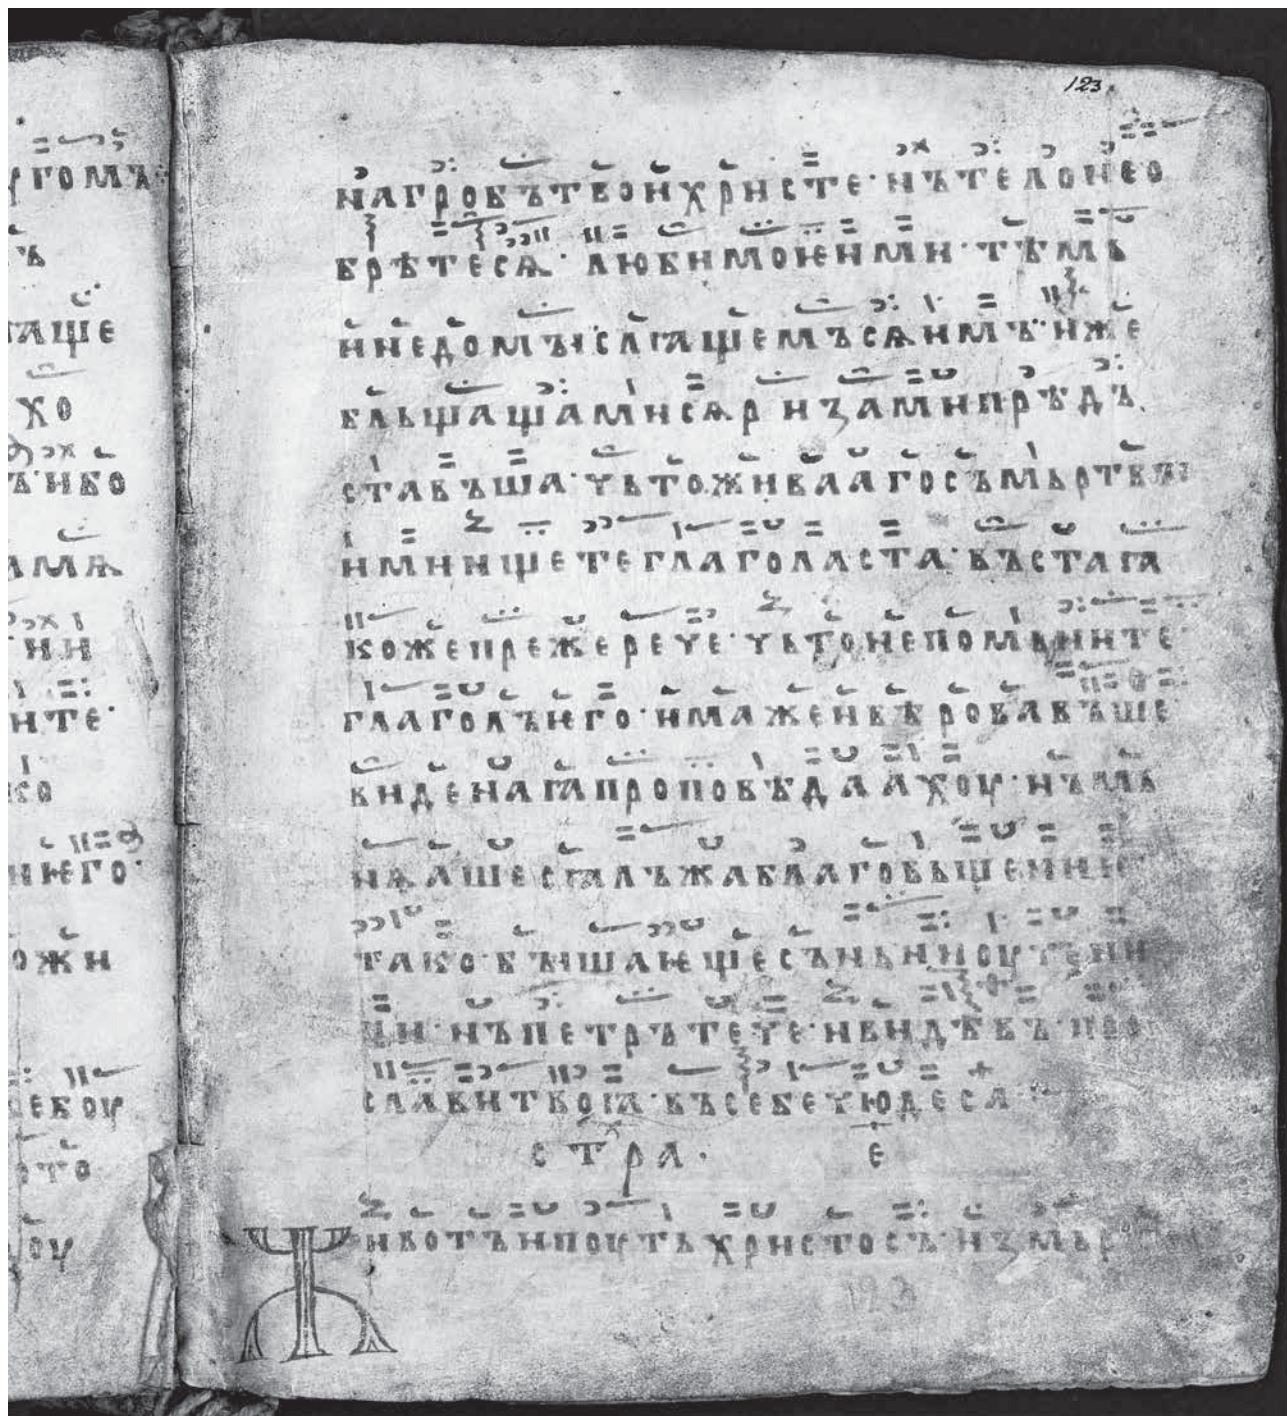 123
угомъ
ъ
ꙗще
хо
ъ·нбо
амѧ
нте·
ко
нѥго·
ожи
ебоу
ето
оу
нагробътвоихристе·нътелонео
брѣтесѧ· любимоѥими·тѣмь
инедомꙑслꙗщемъсѧимъ·иже
бльщащамисѧризамипрѣдъ
ставъша·чьтоживаагосъмьртвꙑ
имиищетеглаголаста·въстаꙗ
кожепрежерече·чьтонепомьните
глаголъѥго·имажевѣровавъше
виденаꙗпроповѣдаахоу·нъмь
нѧашесꙗлъжаблаговѣщениѥ
тако·бѣшаѥщесъньниоучени
ци·нъпетрътече·ивидѣвъ·про
славитвоꙗ·въсебечюдеса·
стра· е
ивотъипоутьхристосъ·измьр
123